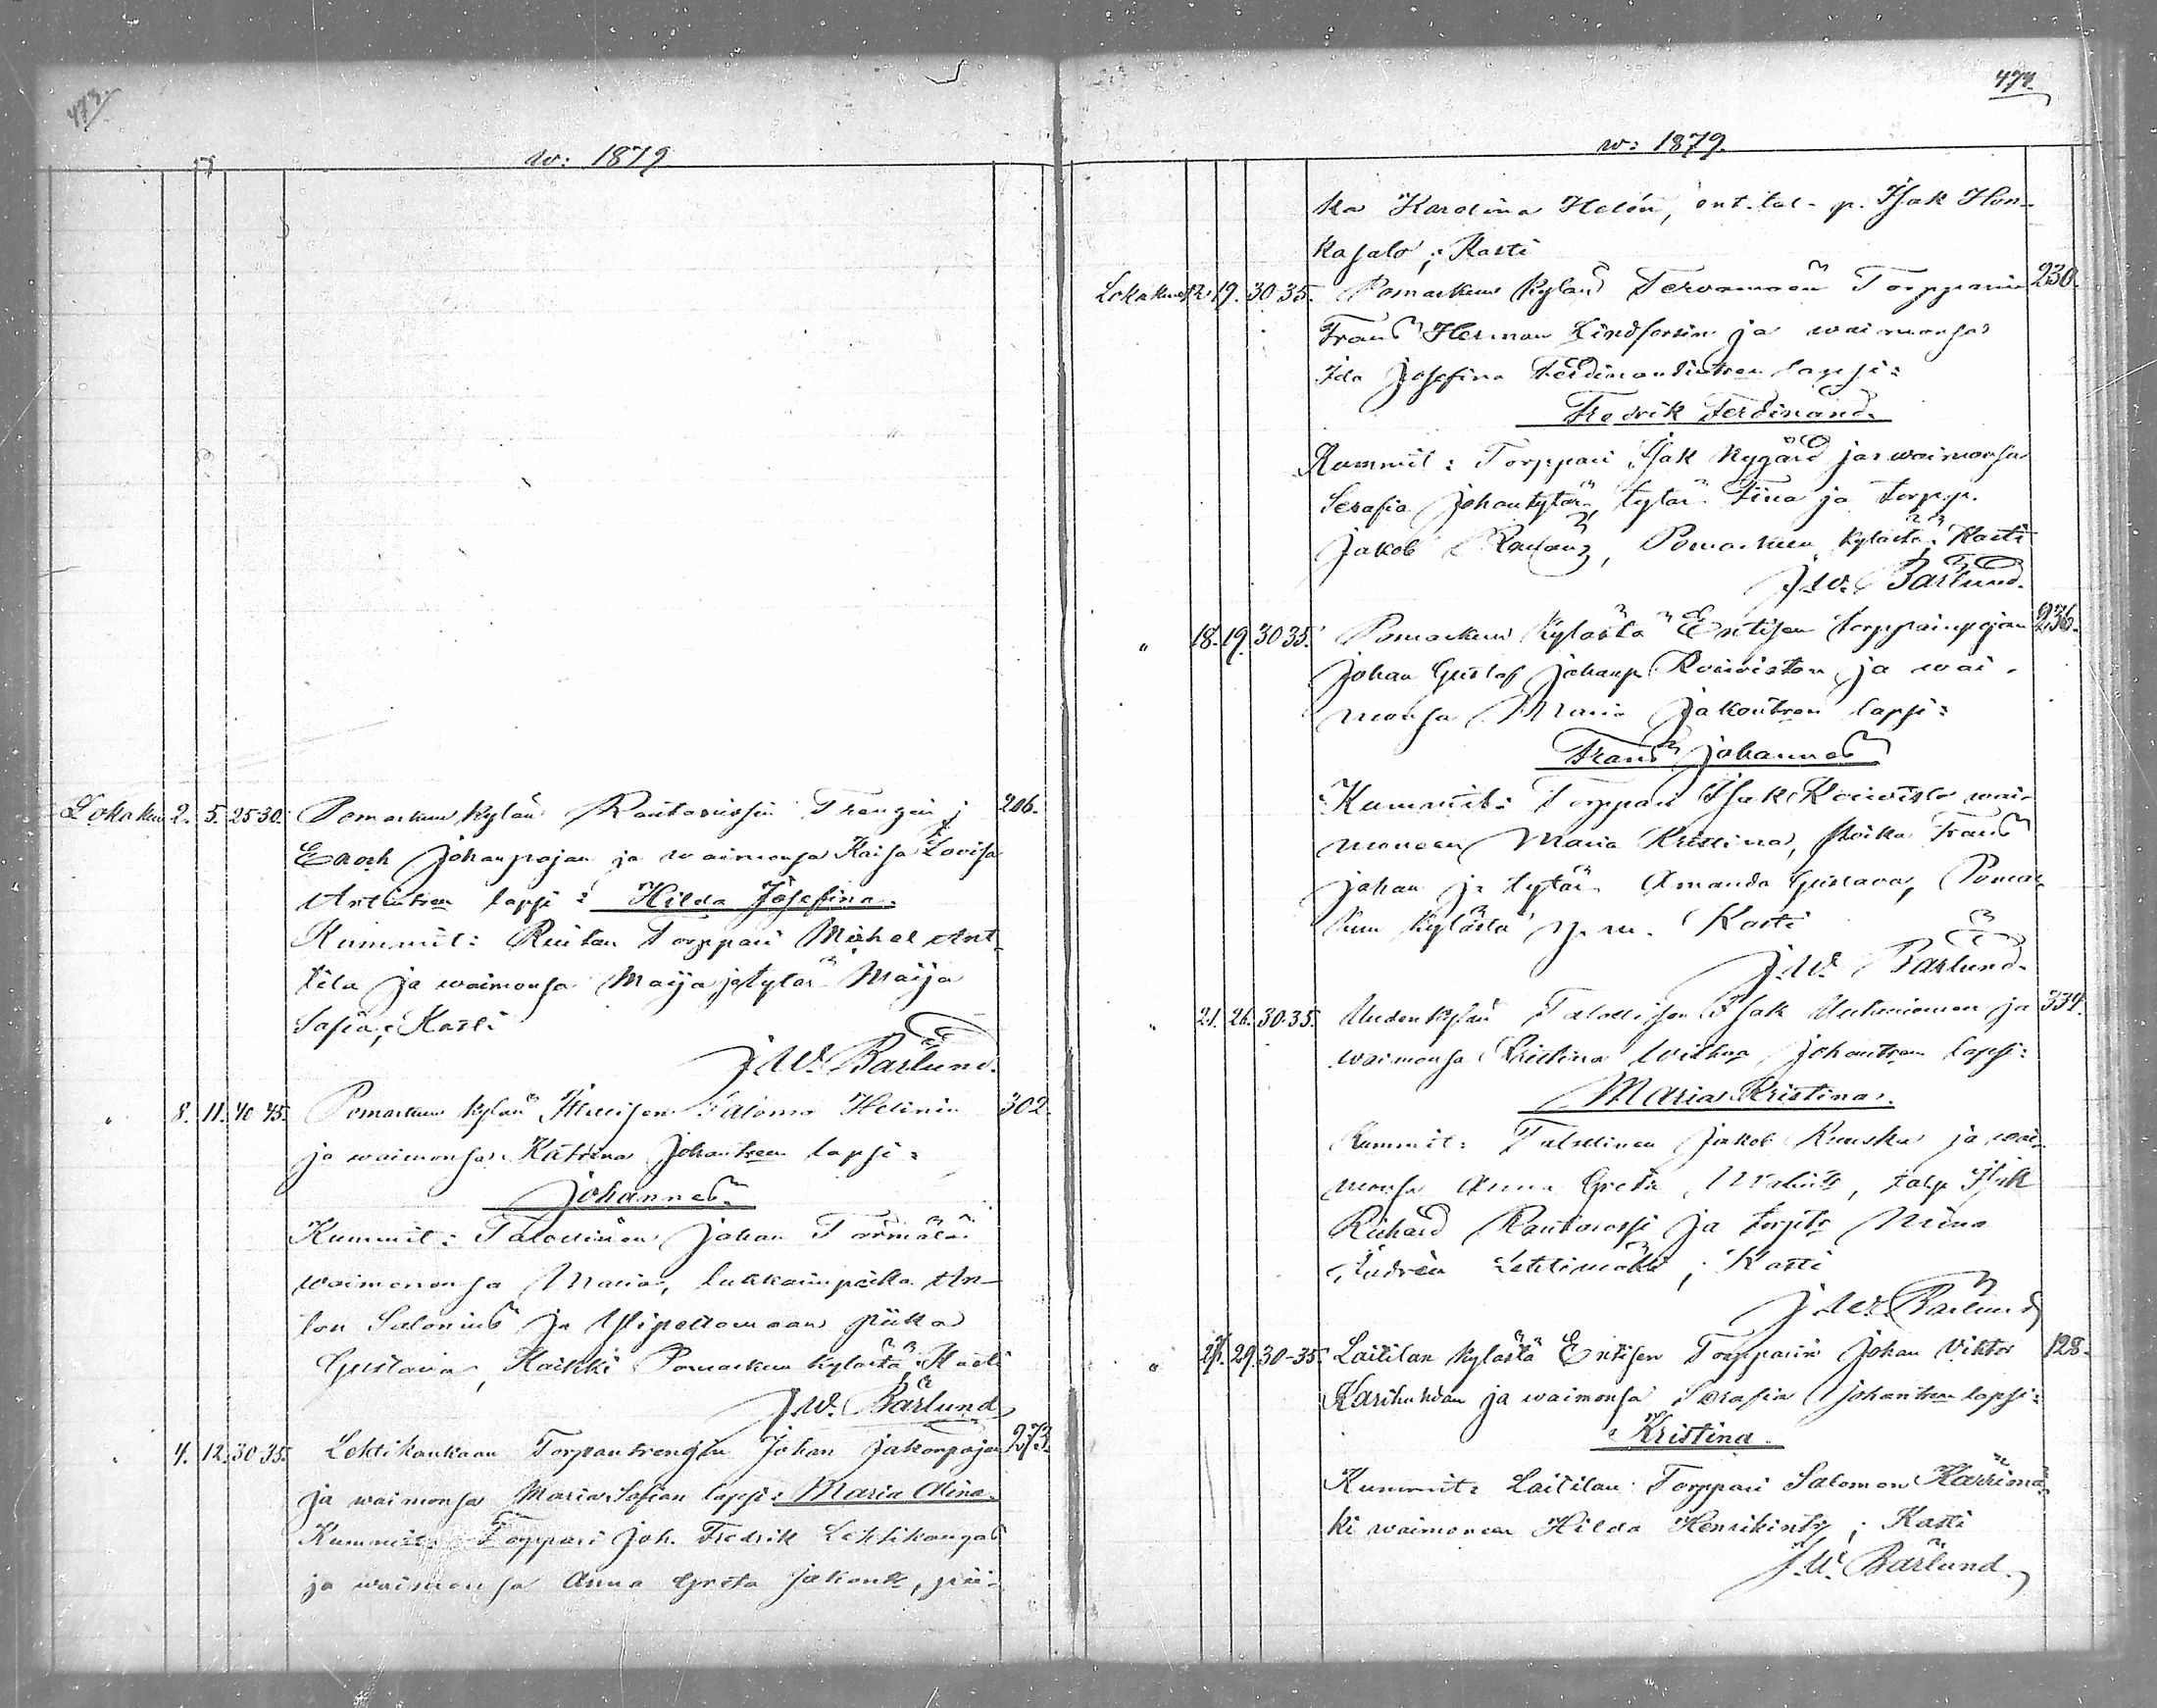 473.
w: 1879
Lokakuu 2. 5. 25-30. Pomarkun kylän Rautarissin Trengin j 206.
Enoch Johanpojan ja waimonsa Kaisa Lovisa
Antintren lapsi: Hilda Josefina.
Kummit: Torppari Michel Ant-
tila ja waimonsa Maija ja tytär Maija
Sofia; Kasti
J.W. Barlund.
" 8. 11. 40-45. Pomarkun kylän Itellisen Salomo Helinin 302.
ja waimonsa Katrina Johantren lapsi:
Johannes.
Kummit: Talollinen Johan Törmälä
waimonensa Maria, lukkarinpoika An-
ton Salonius ja Ylipeltomaan piika
Gustava, Kaikki Pomarkun kylästä; Kasti
J.W. Bärlund
" 4. 12. 30-35. Lehtikankaan Torpantrengin Johan Jakonpojan 273.
ja waimonsa Maria Sofian lapsi: Maria Alina.
Kummit: Torppari Joh. Fredrik Lehtikangas
ja waimonsa Anna Greta Jakontr, pii-
474.
w: 1879.
ka Karolina Helén, ent. tal. p. Isak Hon-
kasalo; Kasti
Lokakuu 12. 19. 30-35. Pomarkun Kylän Tervamaan Torpparin 230.
Frans Herman Lindforsin ja waimonsa
Ida Josefina Ferdinandintren lapsi:
Fredrik Ferdinand.
Kummit: Torppari Isak Nygård ja waimonsa
Serafia Johantytär, tytär Fina ja torp.p.
Jakob, Pomarkun kylästä; Kasti
J.W. Bärlund.
" 18. 19. 30-35. Pomarkun Kylästä Entisen torpparinpojan 236.
Johan Gustaf Johanp. Koiviston ja wai-
monsa Maria Jakontren lapsi:
Frans Johannes
Kummit: Torppari Isak Koivisto wai-
moneen Maria Kristina, poika Frans
Johan ja tytär Amanda Gustava, Pomar-
kun kylästä y.m. Kasti
J.W. Bärlund.
" 21. 26. 30-35. Uudenkylän Talollisen Isak Uutaniemen ja 334.
waimonsa Kristina Wilhna Johantren lapsi:
Maria Kristina.
Kummit: Talollinen Jakob Ruuska ja wai-
monsa Anna Greta, talp. Isak
Richard Rautarissi ja torptr Miina
Lehtimäki; Kasti
J.W. Bärlund
" 27. 29. 30-35. Laitilan kylästä Entisen Torpparin Johan Viktor 128.
Karihuhdan ja waimonsa Serafia Johantren lapsi:
Kristina.
Kummit: Laitilan Torppari Salomon Kärrimä-
ki waimoneen Hilda Henrikintr; Kasti
J.W. Bärlund.